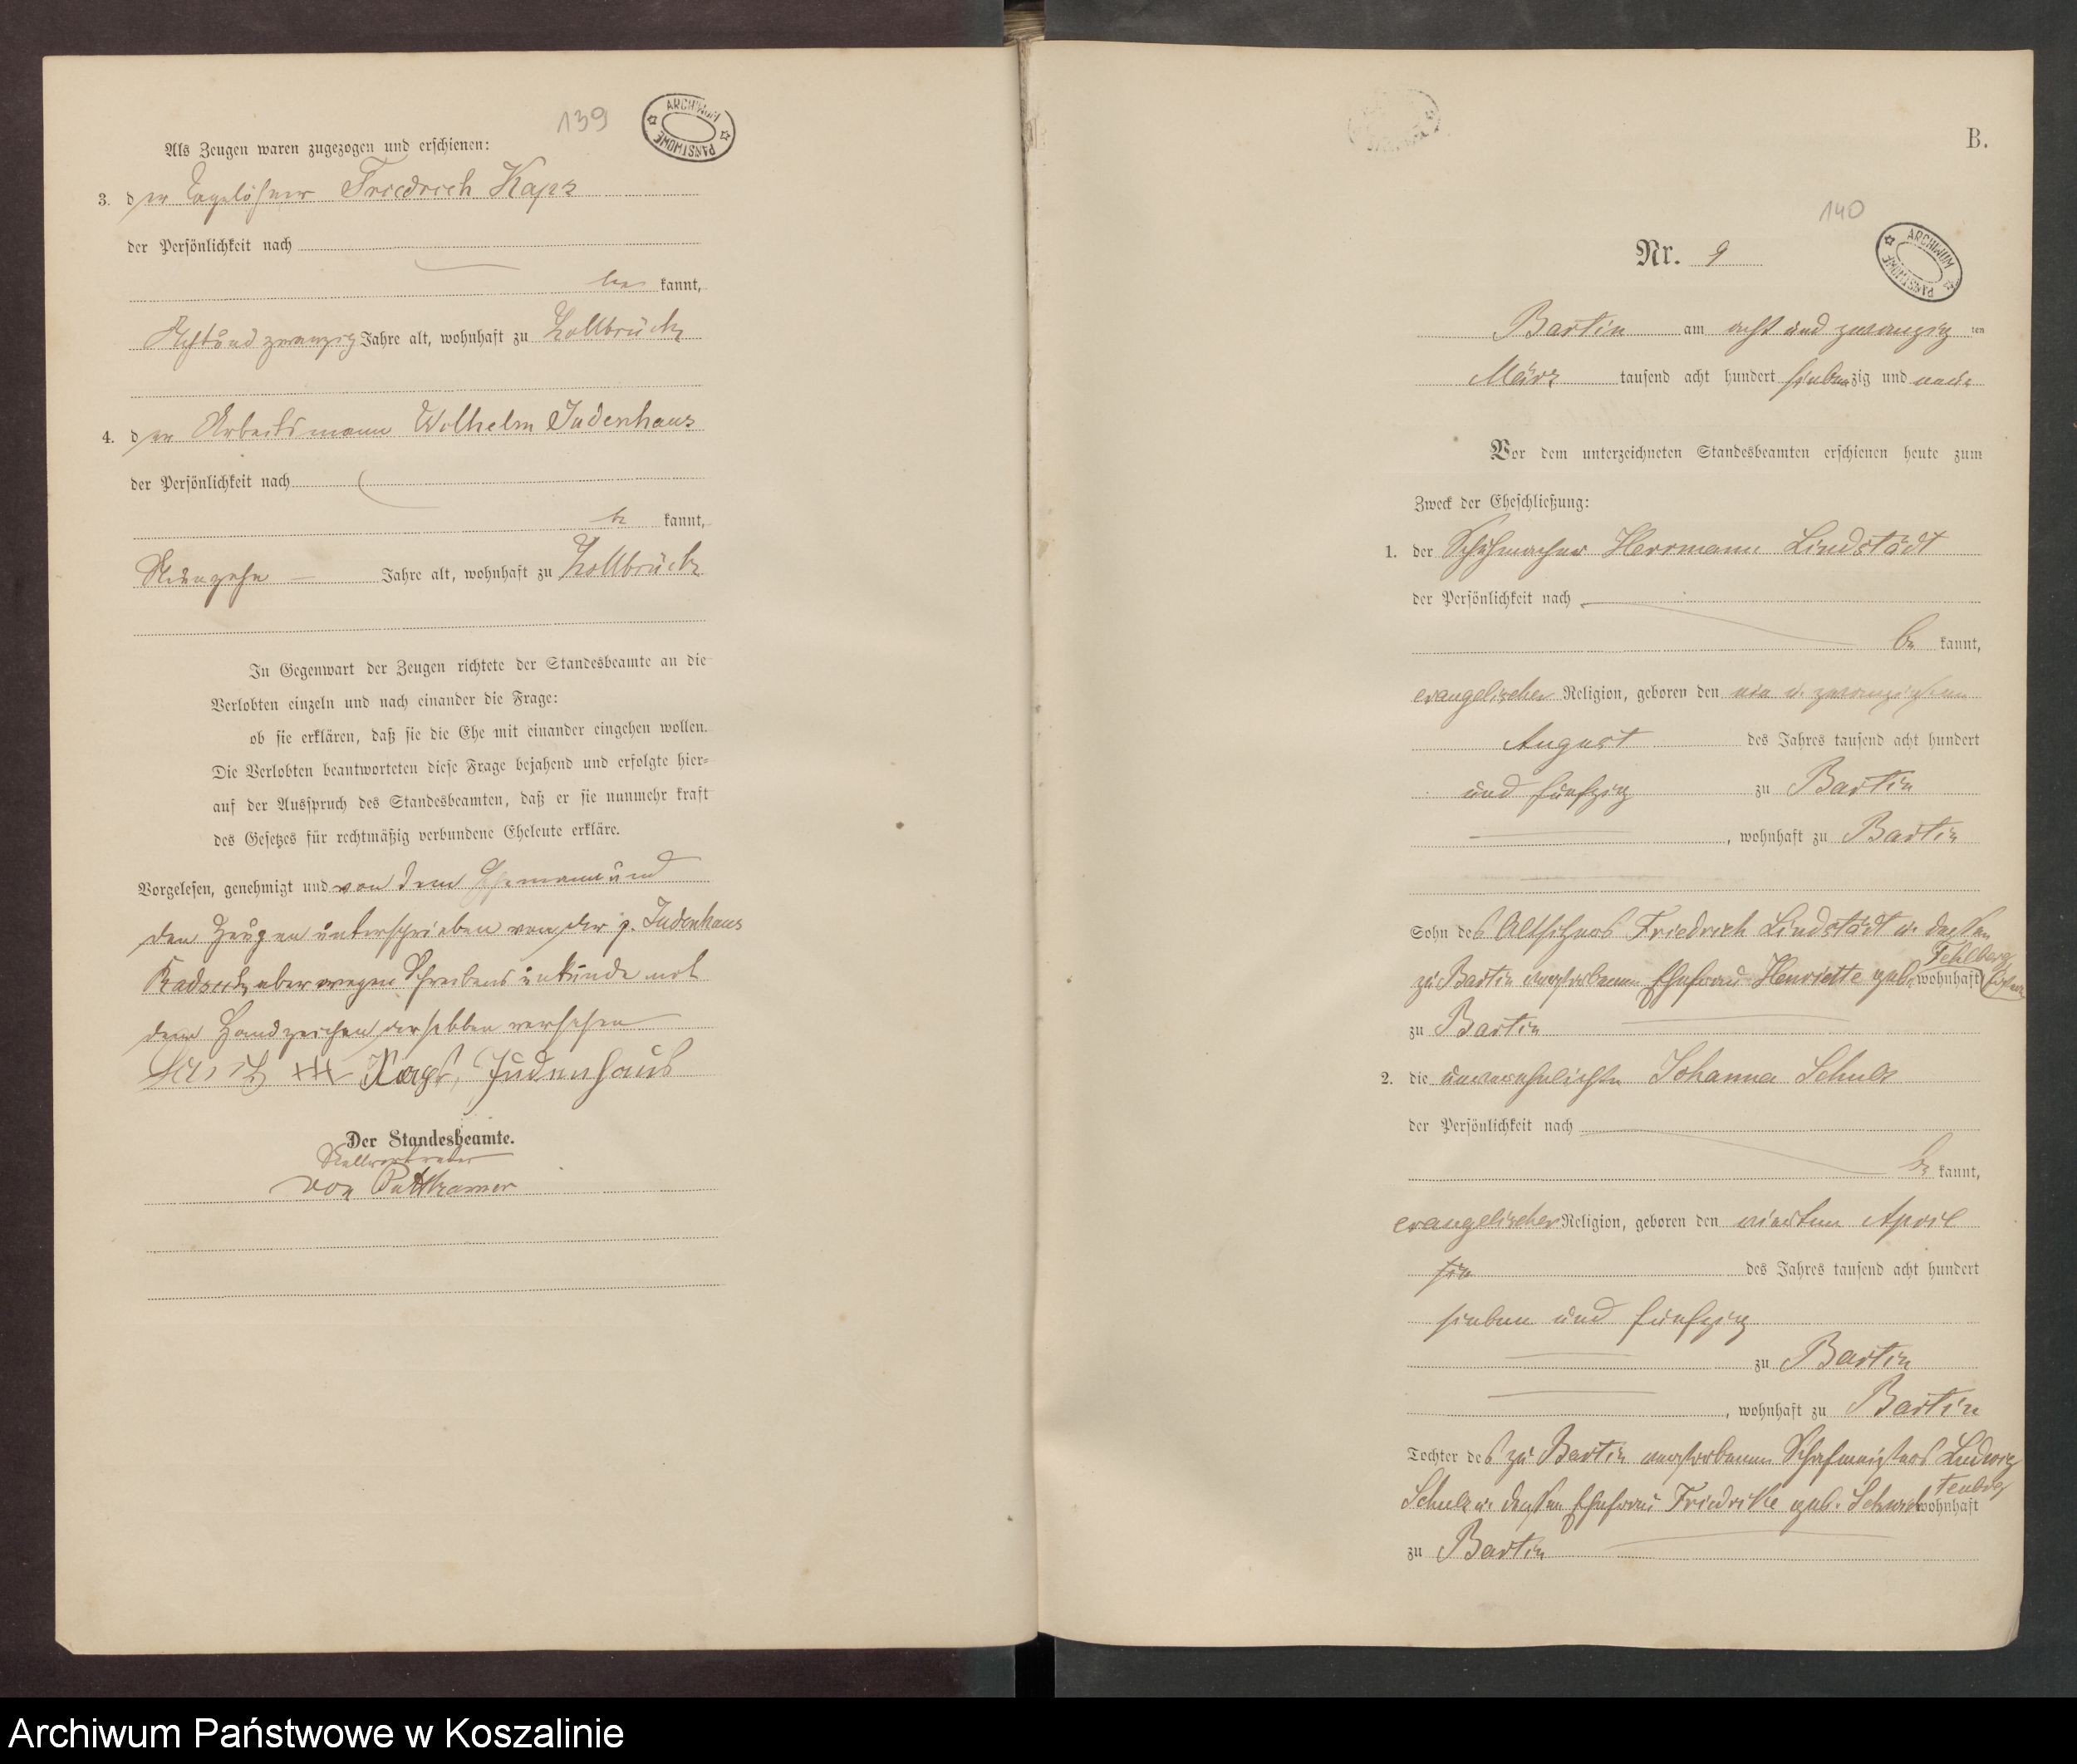 139
ARCHIWUM PAŃSTWOWE
Als Zeugen waren zugezogen und erschienen:
3. der Tagelöhner Friedrich Kaps
der Persönlichkeit nach
be kannt,
Achtundzwanzig Jahre alt, wohnhaft zu Zollbrück
4. der Arbeitsmann Wilhelm Judenhaus
der Persönlichkeit nach
be kannt,
Neunzehn Jahre alt, wohnhaft zu Zollbrück
In Gegenwart der Zeugen richtete der Standesbeamte an die
Verlobten einzeln und nach einander die Frage:
ob sie erklären, daß sie die Ehe mit einander eingehen wollen.
Die Verlobten beantworteten diese Frage bejahend und erfolgte hier-
auf der Ausspruch des Standesbeamten, daß er sie nunmehr kraft
des Gesetzes für rechtmäßig verbundene Eheleute erkläre.
Vorgelesen, genehmigt und von dem Ehemann und
den Zeugen unterschrieben von der g. Judenhaus
aber wegen Schreibens unkunde mit
dem Handzeichen derselben versehen
+++ Kaps, Judenhaus
Der Standesbeamte.
Stellvertreter
von Puttkamer
B.
140
ARCHIWUM PAŃSTWOWE
Nr. 9
Bartin am acht und zwanzig ten
März tausend acht hundert siebenzig und
Vor dem unterzeichneten Standesbeamten erschienen heute zum
Zweck der Eheschließung:
1. der Schuhmacher Herrmann Lindstädt
der Persönlichkeit nach
be kannt,
evangelischer Religion, geboren den ein u. zwanzigsten
August des Jahres tausend acht hundert
und fünfzig zu Bartin
, wohnhaft zu Bartin
Sohn des Altsitzers Friedrich Lindstädt u. dessen
Fehlberg
zu Bartin verstorbenen Ehefrau Henriette geb. wohnhaft
zu Bartin
2. die unverehelichte Johanna Schulz
der Persönlichkeit nach
be kannt,
evangelischer Religion, geboren den vierten April
des Jahres tausend acht hundert
sieben und fünfzig
zu Bartin
, wohnhaft zu Bartin
Tochter des zu Bartin verstorbenen Schafmeisters Ludwig
Schulz u. dessen Ehefrau Friedrike geb. wohnhaft
zu Bartin
Archiwum Państwowe w Koszalinie